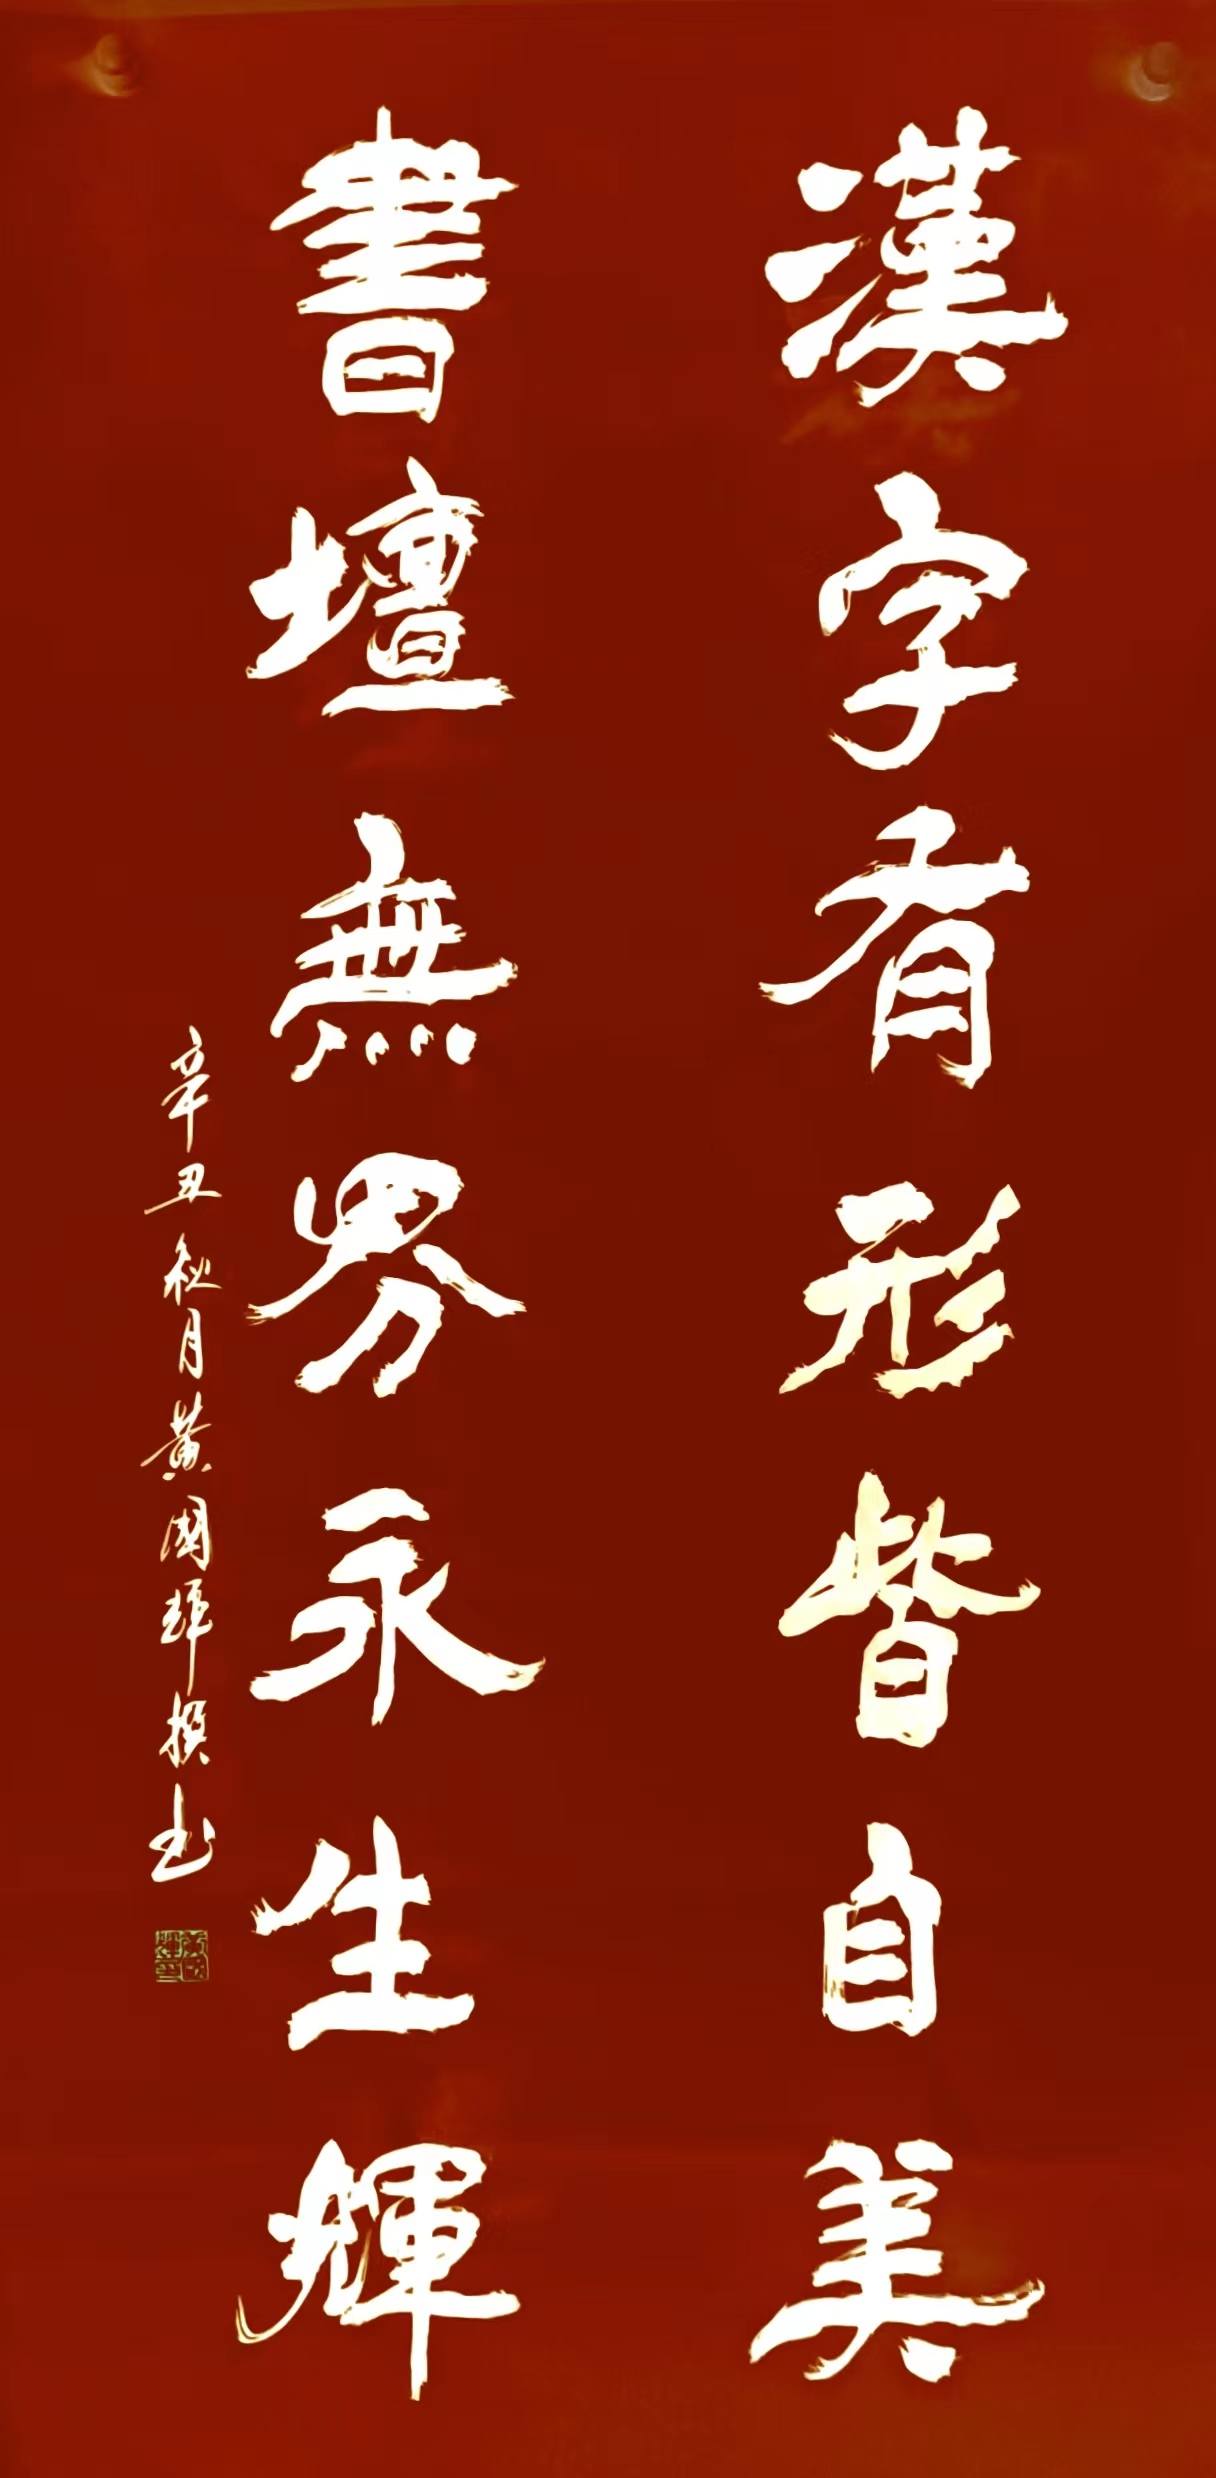 漢字有形皆自美
書壇無界永生輝
辛丑秋月黄國輝撰书